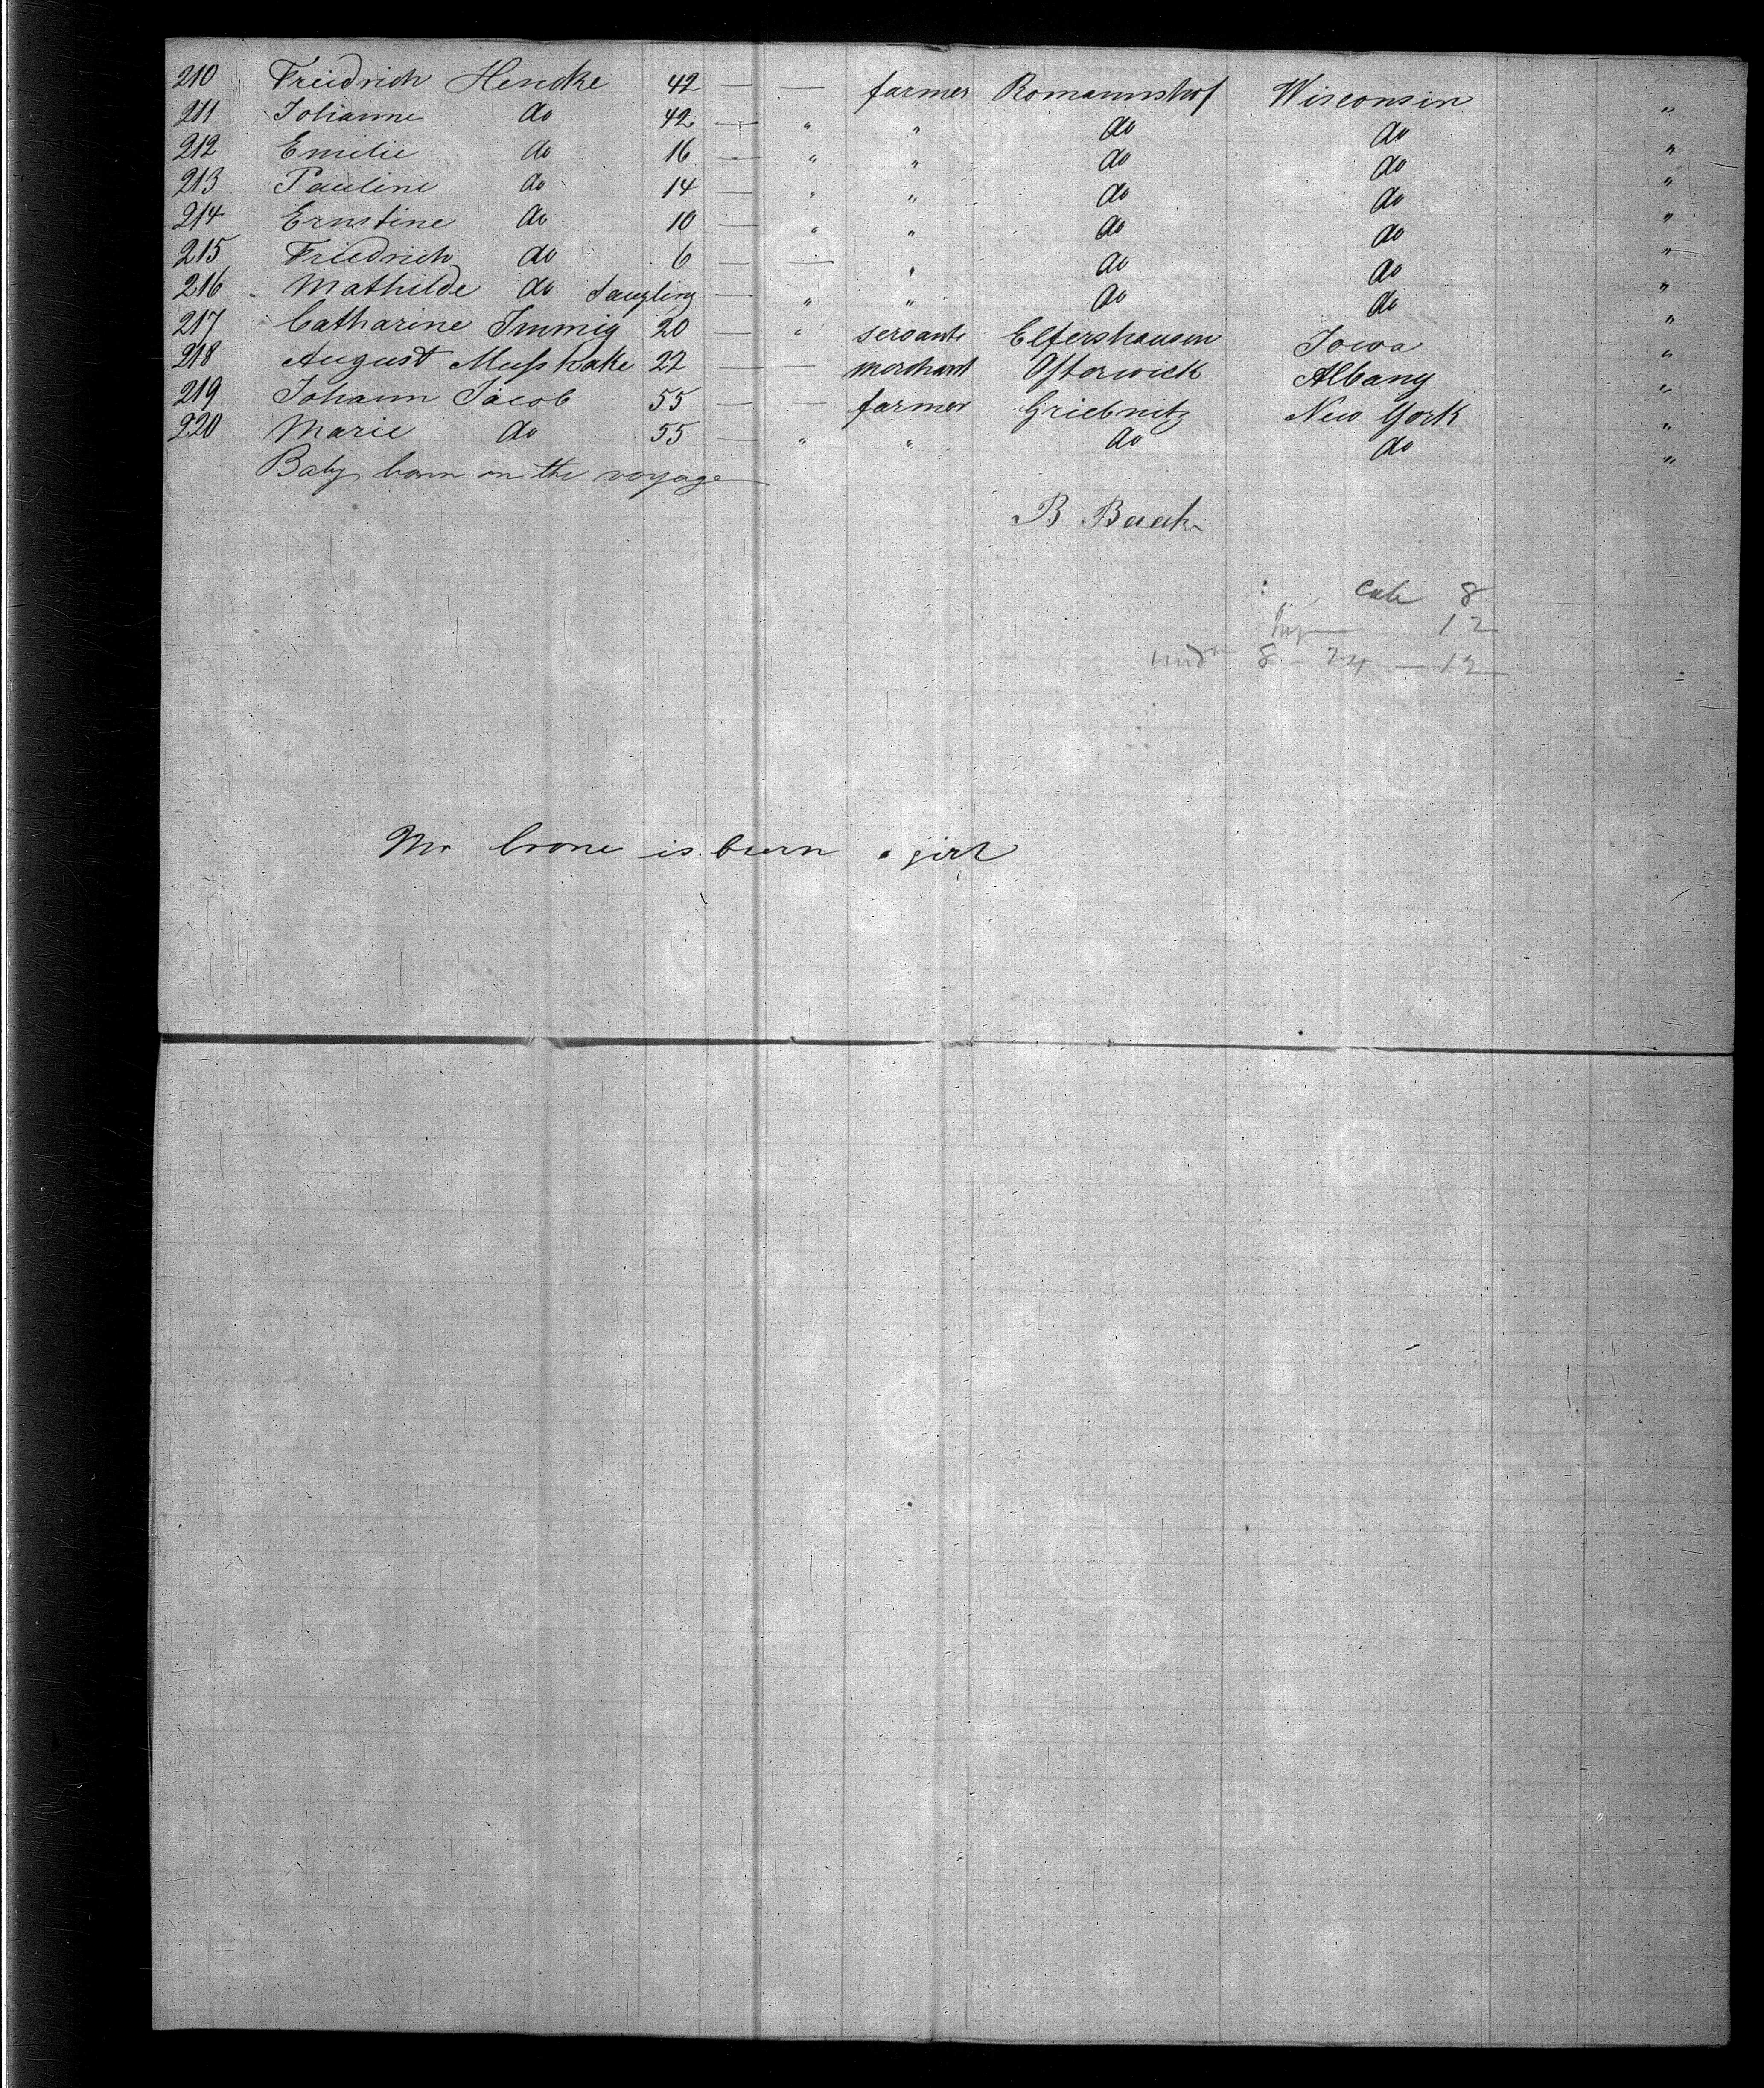 210 Freidrich Hencke 42 — — farmer Romannshof Wisconsin "
211 Johanne do 42 — " " do do "
212 Emilie do 16 — " " do do "
213 Pauline do 14 — " " do do "
214 Ernstine do 10 — " " do do "
215 Friedrich do 6 — — " do do "
216 Mathilde do Saugling — " " do do "
217 Catharine Immig 20 — " servant Elfershausen Iowa "
218 August 22 — — merchant Osterwick Albany "
219 Johann Jacob 55 — — farmer Griebnitz New York "
220 Marie do 55 — " " do do "
Baby born on the voyage
B Baack
8
12
8 - 24 - 12
is born a girl